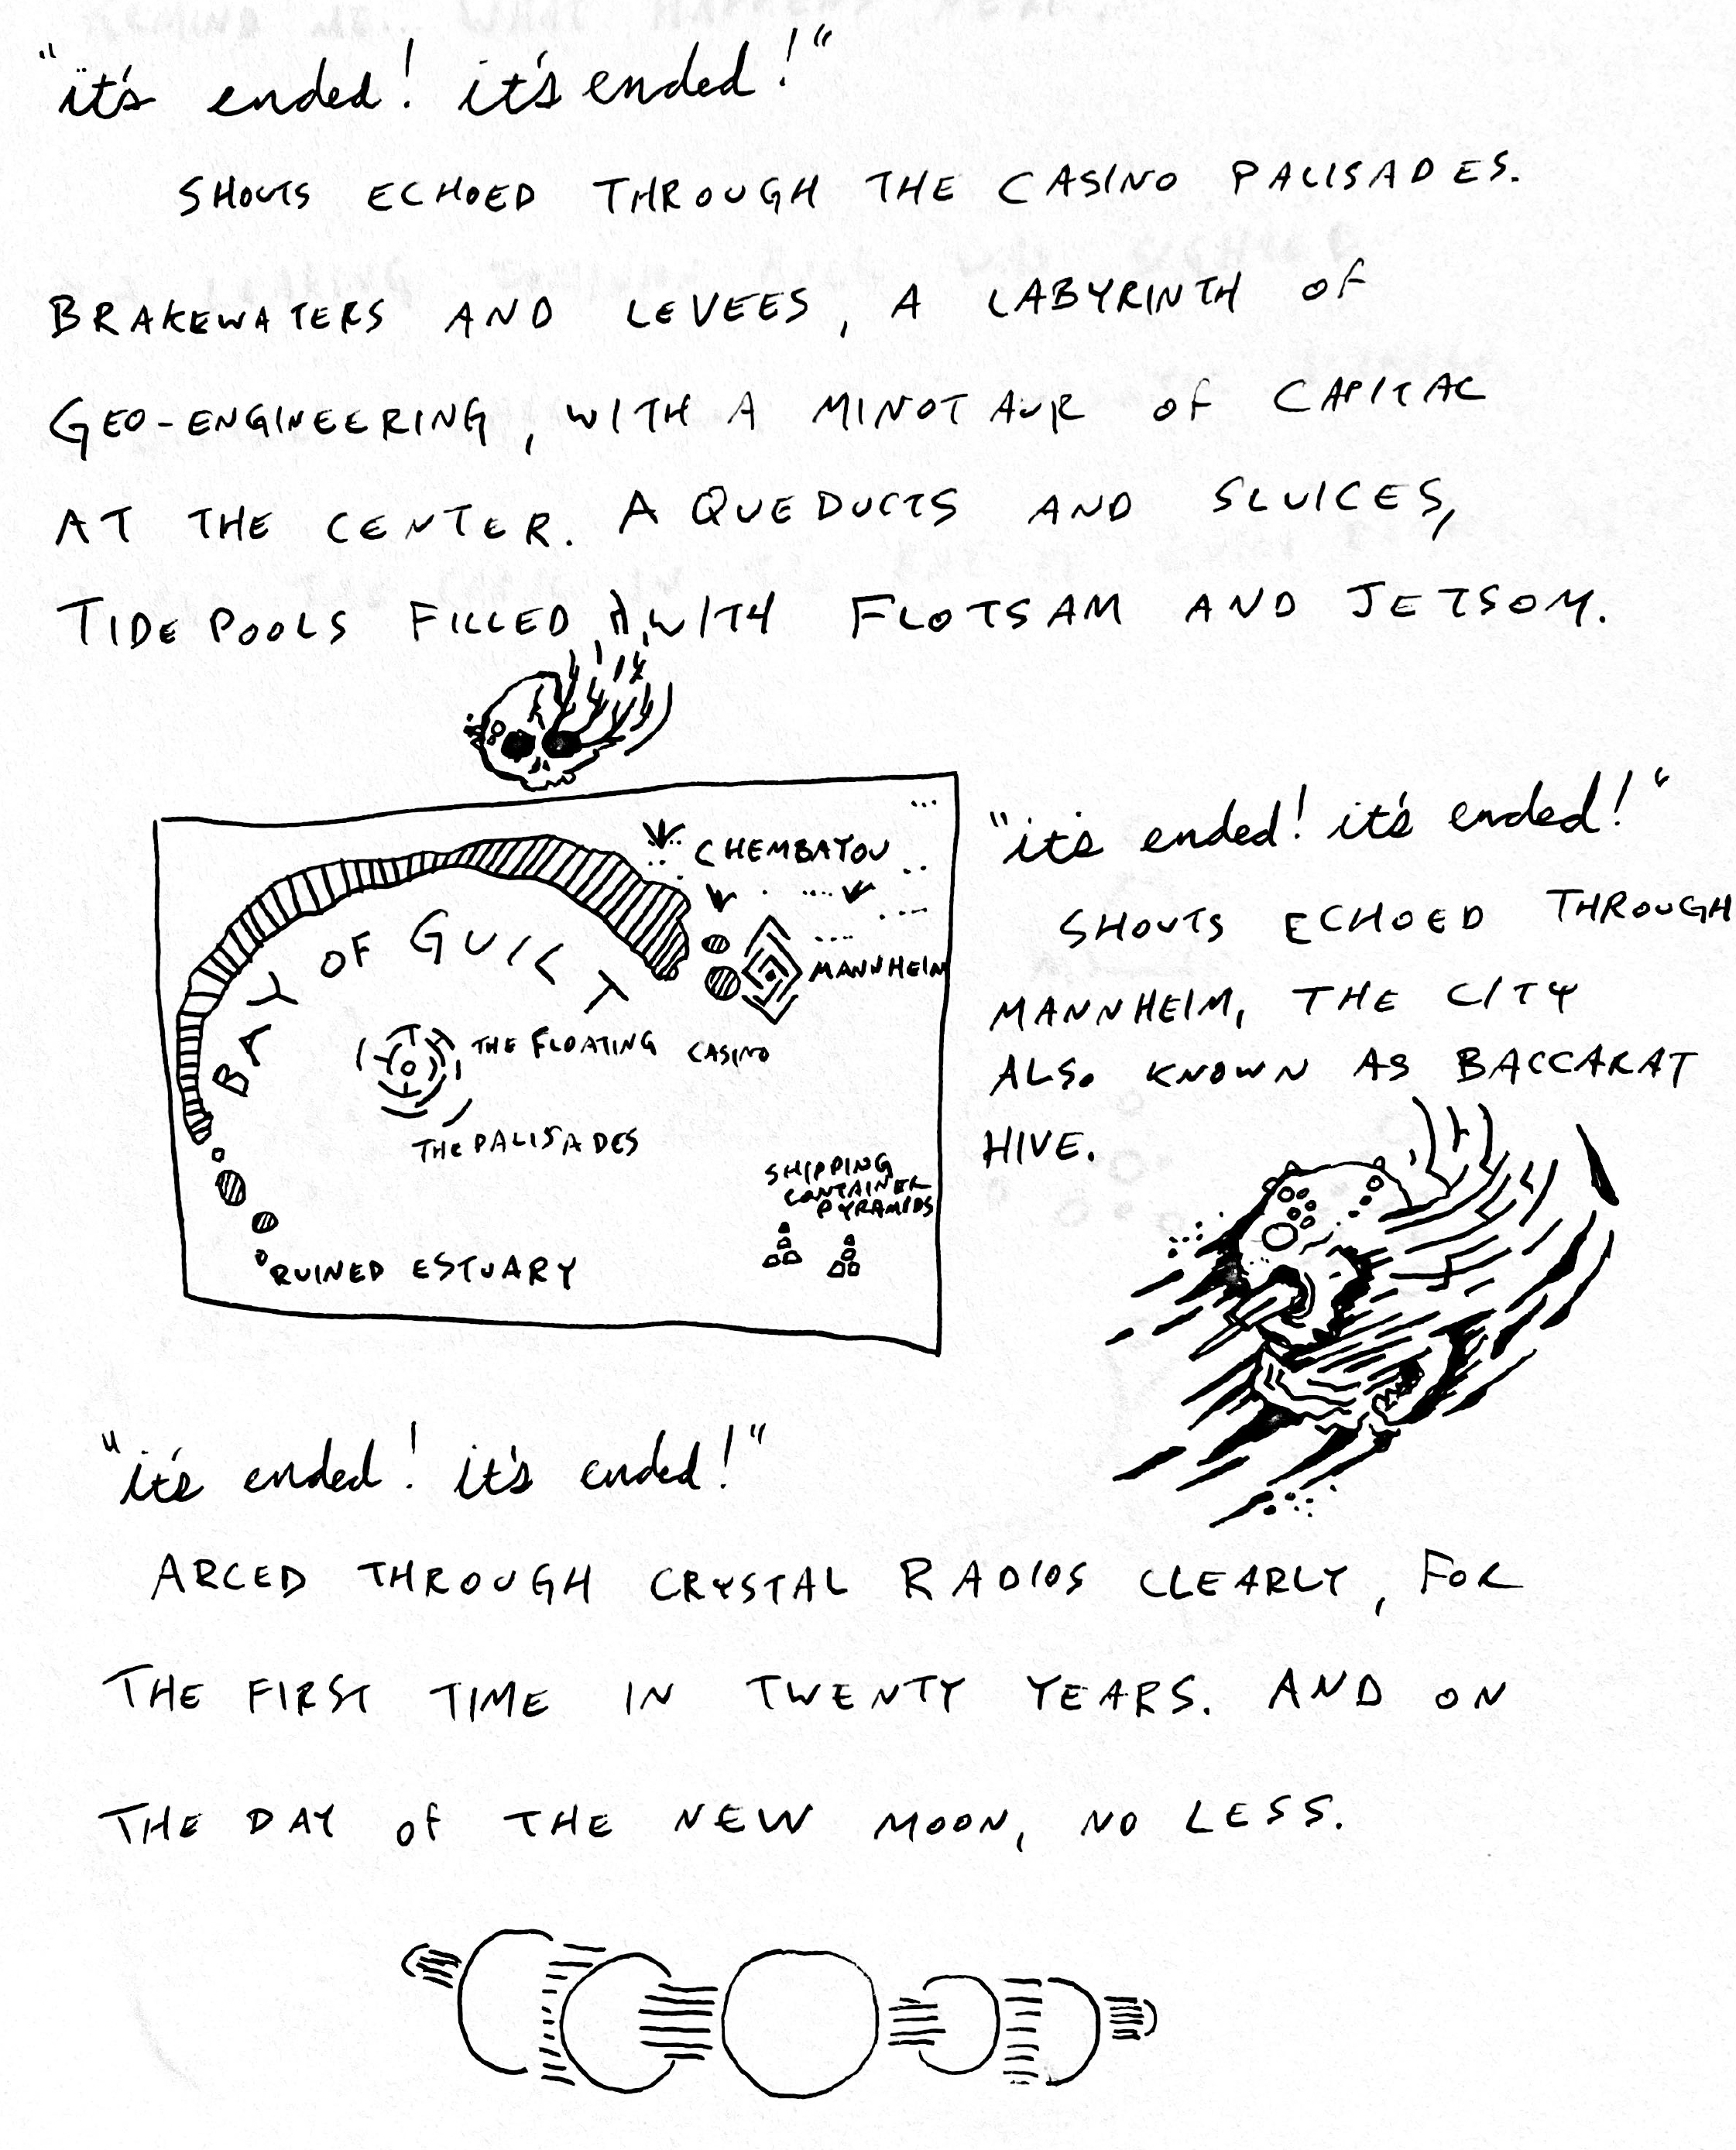 "it's ended! it's ended!"
SHOUTS ECHOED THROUGH THE CASINO PALISADES.
BRAKEWATERS AND LEVEES, A LABYRINTH OF
GEO-ENGINEERING, WITH A MINOTAUR OF CAPITAL
AT THE CENTER. AQUEDUCTS AND SLUICES,
TIDE POOLS FILLED WITH FLOTSAM AND JETSOM.
CHEMBAYOU
BAY OF GUILT
MANNHEIM
THE FLOATING CASINO
THE PALISADES
SHIPPING
CONTAINER
PYRAMIDS
RUINED ESTUARY
"it's ended! it's ended!"
SHOUTS ECHOED THROUGH
MANNHEIM, THE CITY
ALSO KNOWN AS BACCARAT
HIVE.
"it's ended! it's ended!"
ARCED THROUGH CRYSTAL RADIOS CLEARLY, FOR
THE FIRST TIME IN TWENTY YEARS. AND ON
THE DAY OF THE NEW MOON, NO LESS.